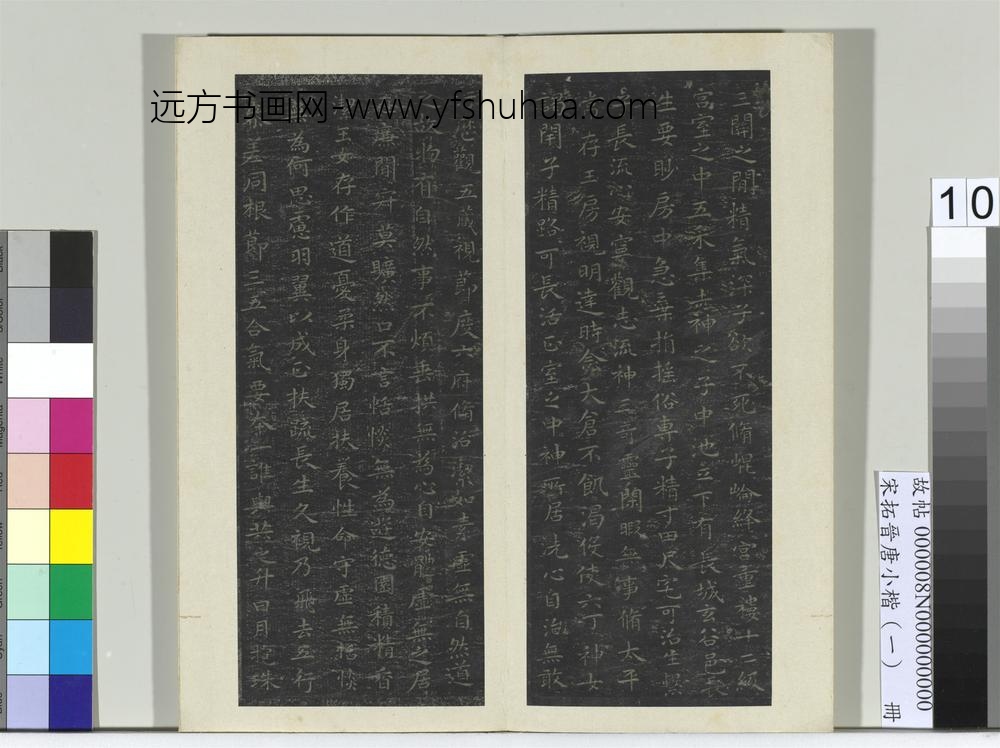 远方书画网-www.yfshuhua.com
三關之間精氣深子欲不死脩崐崘絳宮重樓十二級
宮室之中五采集赤神之子中池立下有長城玄谷邑長
生要眇房中急棄捐搖俗專子精寸田尺宅可治生繫
長流心安寧觀志流神三奇靈閑暇無事脩太平
存玉房視明達時念大倉不飢渴役使六丁神女
閉子精路可長活正室之中神所居洗心自治無敢
歷觀五藏視節度六府脩治潔如素虛無自然道
物有自然事不煩垂拱無為心自安體虛無之居
廉間寂莫曠然口不言恬惔無為遊德園積精香
玉女存作道憂柔身獨居扶養性命守虛無恬惔
為何思慮羽翼以成正扶疏長生久視乃飛去五行
參差同根節三五合氣要本一誰與共之升日月抱珠
10
故帖 000008N000000000
宋拓晉唐小楷（一） 冊